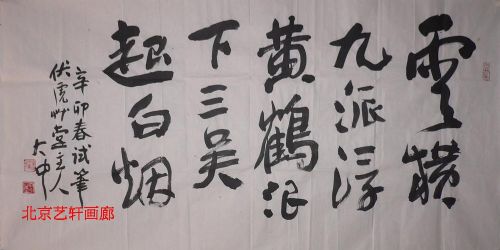 雲横
九派浮
黄鶴浪
下三吴
起白烟
辛卯春试筆
伏虎艸堂主人
大中
北京艺轩画廊